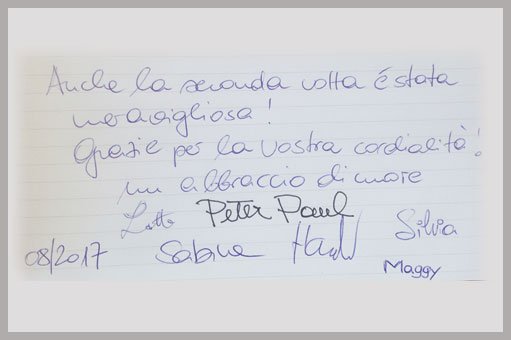 Anche la seconda volta é stata
meravigliosa!
Grazie per la vostra cordialità!
un abbraccio di cuore
Peter Paul
Silvia
08/2017 Sabine
Maggy